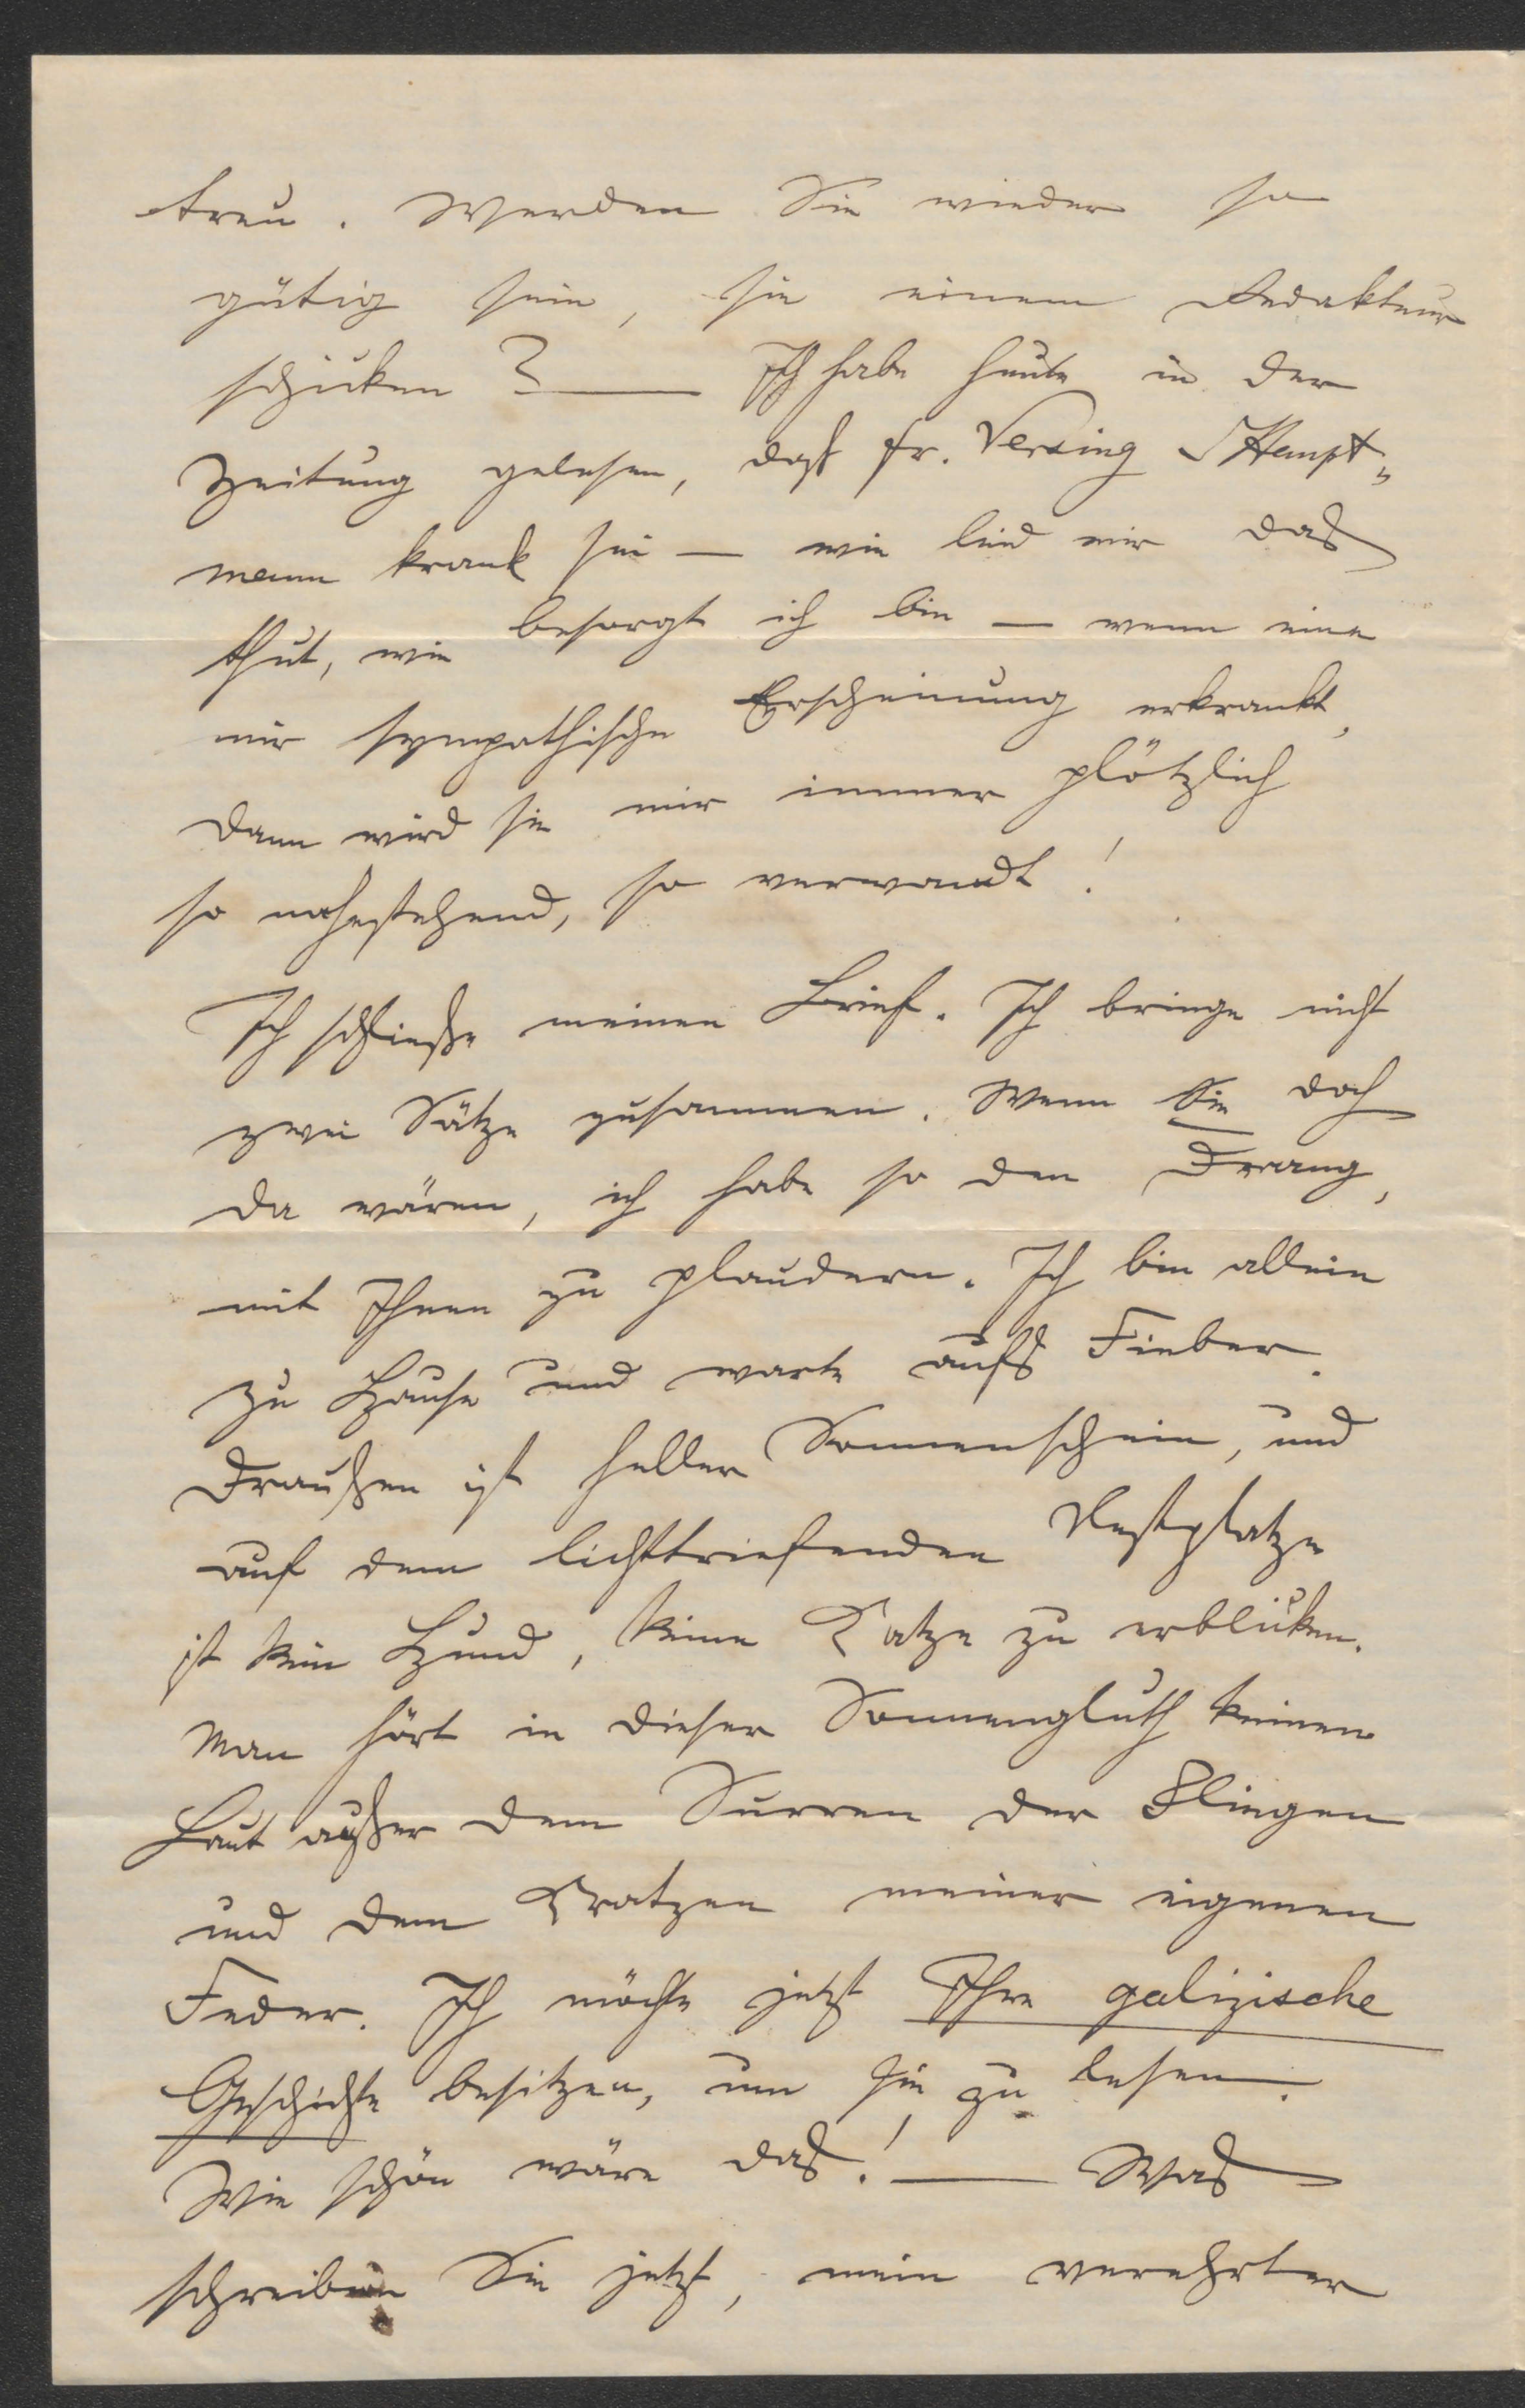 treu. Werden Sie wieder so
gütig sein, sie einem Redakteur
schicken? — Ich habe heute in der
Zeitung gelesen, daß Fr. Versing Haupt-
mann krank sei — wie leid mir das
thut, wie besorgt ich bin — wenn eine
mir sympathische Erscheinung erkrankt,
dann wird sie mir immer plötzlich
so nahestehend, so verwandt!
Ich schließe meinen Brief. Ich bringe nicht
zwei Sätze zusammen. Wenn Sie doch
da wären, ich habe so den Drang,
mit Ihnen zu plaudern. Ich bin allein
zu Hause und warte aufs Fieber.
Draußen ist heller Sonnenschein, und
auf dem lichttriefenden
ist kein Hund, keine Katze zu erblicken.
Man hört in dieser Sonnengluth keinen
Laut außer dem Surren der Fliegen
und dem Kratzen meiner eigenen
Feder. Ich möchte jetzt Ihre galizische
Geschichte besitzen, um sie zu lesen.
Wie schön wäre das! — Was
schreiben Sie jetzt, mein verehrter